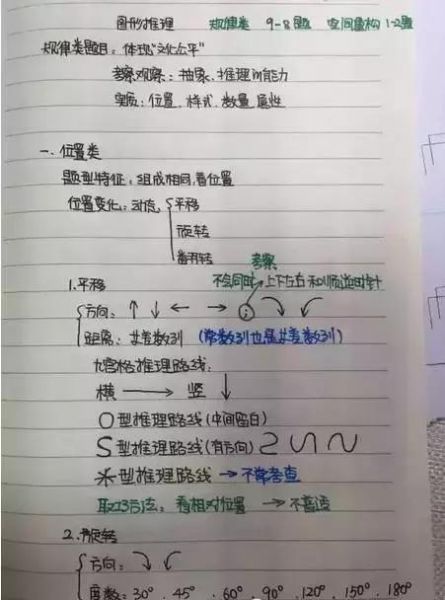 图形推理 规律类 9-8题 空间重构 1-2题
规律类题目：体现"文化公平"
考察观察、抽象、推理的能力
实质：位置、样式、数量、属性
一、位置类
题型特征：组成相同，看位置
位置变化：动态 平移
旋转
翻转
考察
1.平移 不会同时 上下左右和顺逆时针
方向：↑ ↓ ← → ；
距离：等差数列（常数列也是等差数列）
九宫格推理路线：
横 → 竖 ↓
O型推理路线（中间留白）
S型推理路线（有方向）
米型推理路线 → 不常考查
取巧方法：看相对位置 → 不普适
2.旋转
方向：
度数：30°、45°、60°、90°、120°、150°、180°